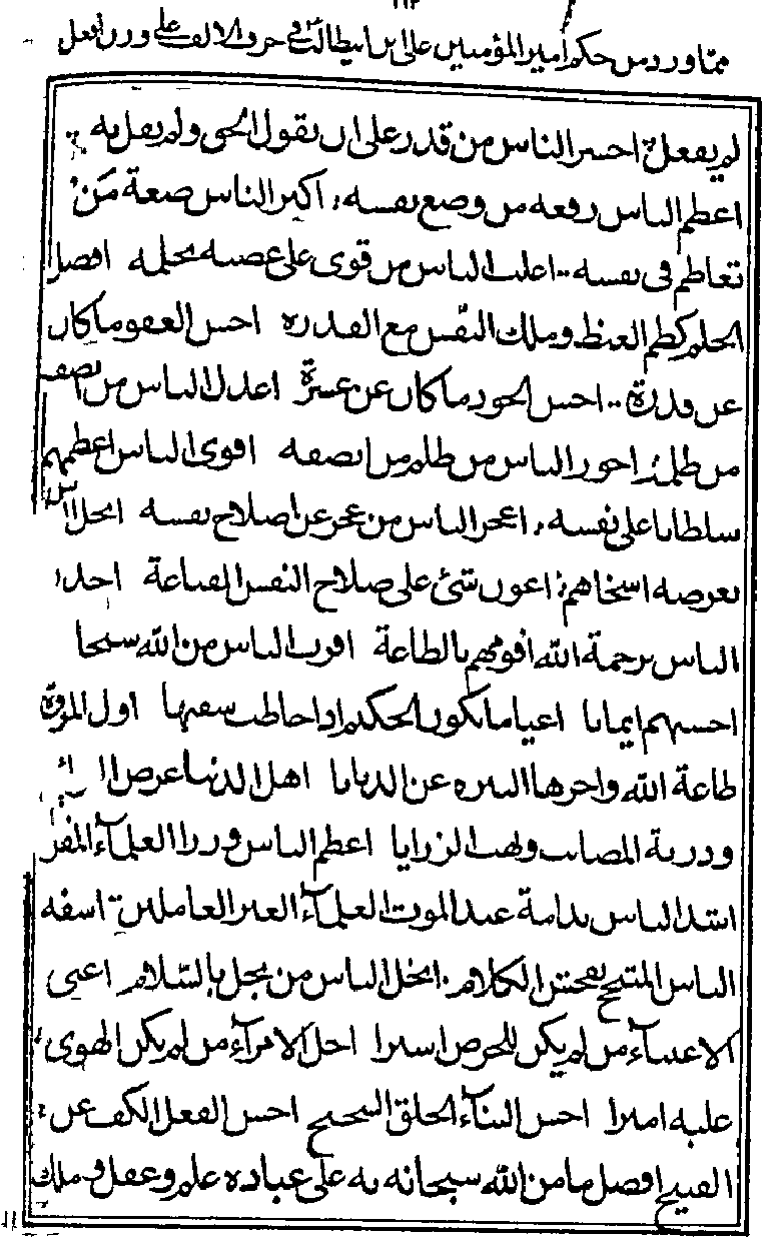 ١١٢
مما ورد من حكم امير المؤمنين علي ابن ابيطالب في حرف الالف على وزن افعل
لم يفعل احسر الناس من قدر على ان يقول الحق ولم يقل به
اعظم الناس رفعه من وضع نفسه اكبر الناس ضعة من
تعاظم في نفسه اغلب الناس من قوى على غضبه بحلمه افضل
الحلم كظم الغيظ وملك النفس مع القدره احسن العفو ما كان
عن قدرة احسن الجود ما كان عن عسرة اعدل الناس من انصف
من ظلمه احور الناس من ظلم من انصفه اقوى الناس اعظمهم
سلطانا على نفسه اعجز الناس من عجز عن اصلاح نفسه ابخل الناس
بعرضه اسخاهم اعون شئ على صلاح النفس القناعة اجدر
الناس برحمة الله اقومهم بالطاعة اقرب الناس من الله سبحا
احسنهم ايمانا اعيا ما يكون الحكيم اذا خاطب سفيها اول المروة
طاعة الله واخرها التنزه عن الدنايا اهل الدنيا غرض
ودرية المصائب ونهب الرزايا اعظم الناس وزرا العلماء المفر
اشد الناس ندامة عند الموت العلماء الغير العاملين اسفه
الناس المتبجح بفحش الكلام ابخل الناس من بخل بالسلام اغنى
الاغنياء من لم يكن للحرص اسيرا اجل الامراء من لم يكن الهوى
عليه اميرا احسن السناء الخلق السجيح احسن الفعل الكف عن
القبيح افضل ما من الله سبحانه به على عباده علم وعقل وملك